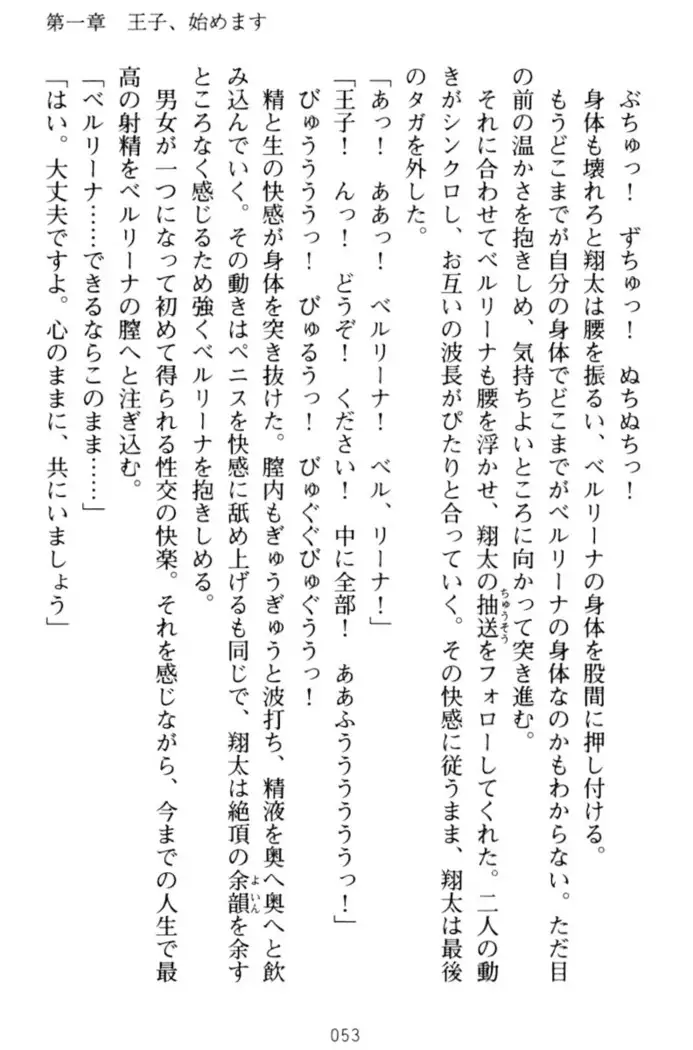 第一章　王子、始めます
ぶちゅっ！　ずちゅっ！　ぬちぬちっ！
身体も壊れろと翔太は腰を振るい、ベルリーナの身体を股間に押し付ける。
もうどこまでが自分の身体でどこまでがベルリーナの身体なのかもわからない。ただ目
の前の温かさを抱きしめ、気持ちよいところに向かって突き進む。
それに合わせてベルリーナも腰を浮かせ、翔太の抽送をフォローしてくれた。二人の動
きがシンクロし、お互いの波長がぴたりと合っていく。その快感に従うまま、翔太は最後
のタガを外した。
「あっ！　ああっ！　ベルリーナ！　ベル、リーナ！」
「王子！　んっ！　どうぞ！　ください！　中に全部！　ああふうううううっ！」
びゅうううっ！　びゅるうっ！　びゅぐぐびゅぐううっ！
精と生の快感が身体を突き抜けた。膣内もぎゅうぎゅうと波打ち、精液を奥へ奥へと飲
み込んでいく。その動きはペニスを快感に舐め上げるも同じで、翔太は絶頂の余韻を余す
ところなく感じるため強くベルリーナを抱きしめる。
男女が一つになって初めて得られる性交の快楽。それを感じながら、今までの人生で最
高の射精をベルリーナの膣へと注ぎ込む。
「ベルリーナ……できるならこのまま……」
「はい。大丈夫ですよ。心のままに、共にいましょう」
053